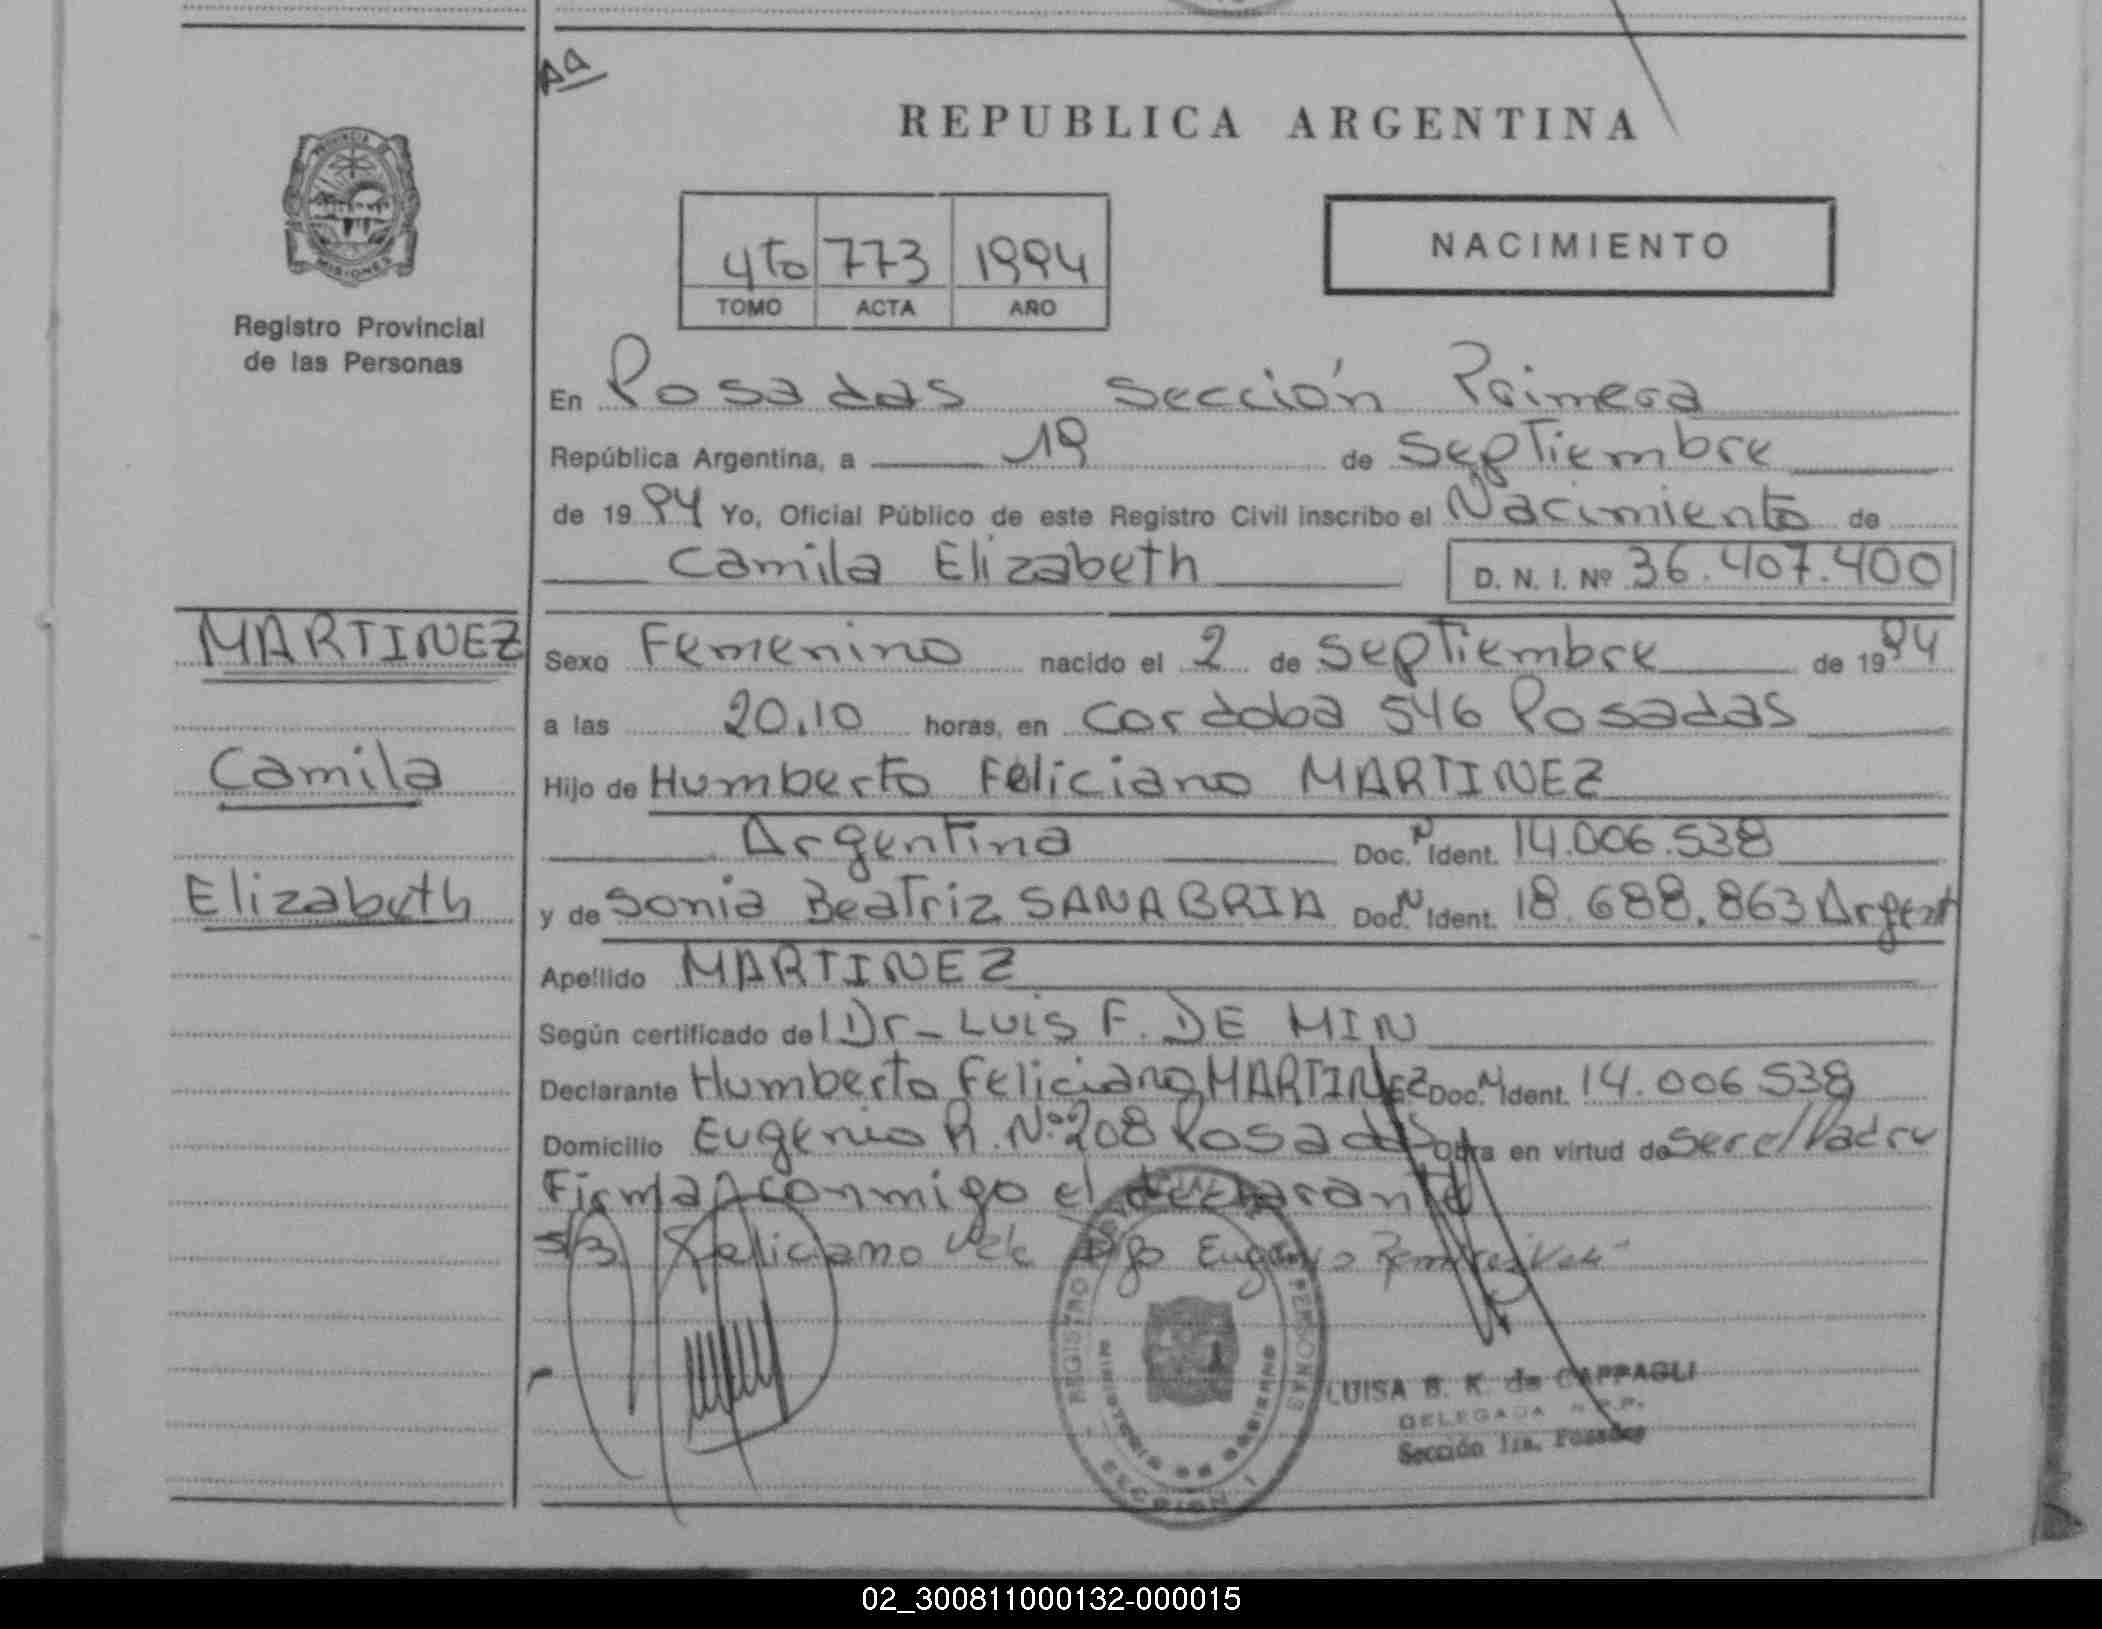 Aa
REPUBLICA ARGENTINA
PROVINCIA DE
MISIONES
4to 773 1994
TOMO ACTA AÑO
NACIMIENTO
Registro Provincial
de las Personas
En Posadas Sección Primera
República Argentina, a 19 de Septiembre
de 1994 Yo, Oficial Público de este Registro Civil inscribo el Nacimiento de
Camila Elizabeth D. N. I. Nº 36.407.400
MARTINEZ
Camila
Elizabeth
Sexo Femenino nacido el 2 de Septiembre de 1994
a las 20,10 horas, en Cordoba 546 Posadas
Hijo de Humberto Feliciano MARTINEZ
Argentina Doc. N Ident. 14.006.538
y de Sonia Beatriz SANABRIA Doc. N Ident. 18.688.863 Argent
Apellido MARTINEZ
Según certificado de Dr-LUIS F. DE MIN
Declarante Humberto Feliciano MARTINEZ Doc. N Ident. 14.006 538
Domicilio Eugenio R. Nº 208 Posadas Obra en virtud de ser el Padre
Firma conmigo el declarante
s/b Feliciano Vele Eugenio Ramirez Vele
REGISTRO PERSONAS
MINISTERIO DE GOBIERNO
SECCION 1
LUISA B. K. de CAPPAGLI
DELEGADA R.P.P.
Sección 1ra. Posadas
02_300811000132-000015